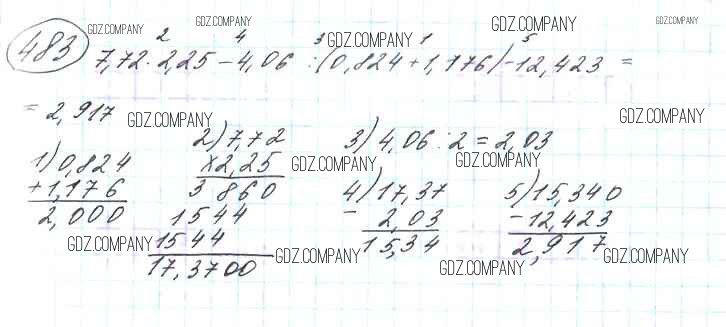 483
2 4 3 1 5
7,72 · 2,25 – 4,06 : (0,824 + 1,176) – 12,423 =
= 2,917
1) 0,824
+ 1,176
2,000
2) 7,72
× 2,25
3 860
1544
1544
17,3700
3) 4,06 : 2 = 2,03
4) 17,37
- 2,03
15,34
5) 15,340
- 12,423
2,917
GDZ.COMPANY
GDZ.COMPANY
GDZ.COMPANY
GDZ.COMPANY
GDZ.COMPANY
GDZ.COMPANY
GDZ.COMPANY
GDZ.COMPANY
GDZ.COMPANY
GDZ.COMPANY
GDZ.COMPANY
GDZ.COMPANY
GDZ.COMPANY